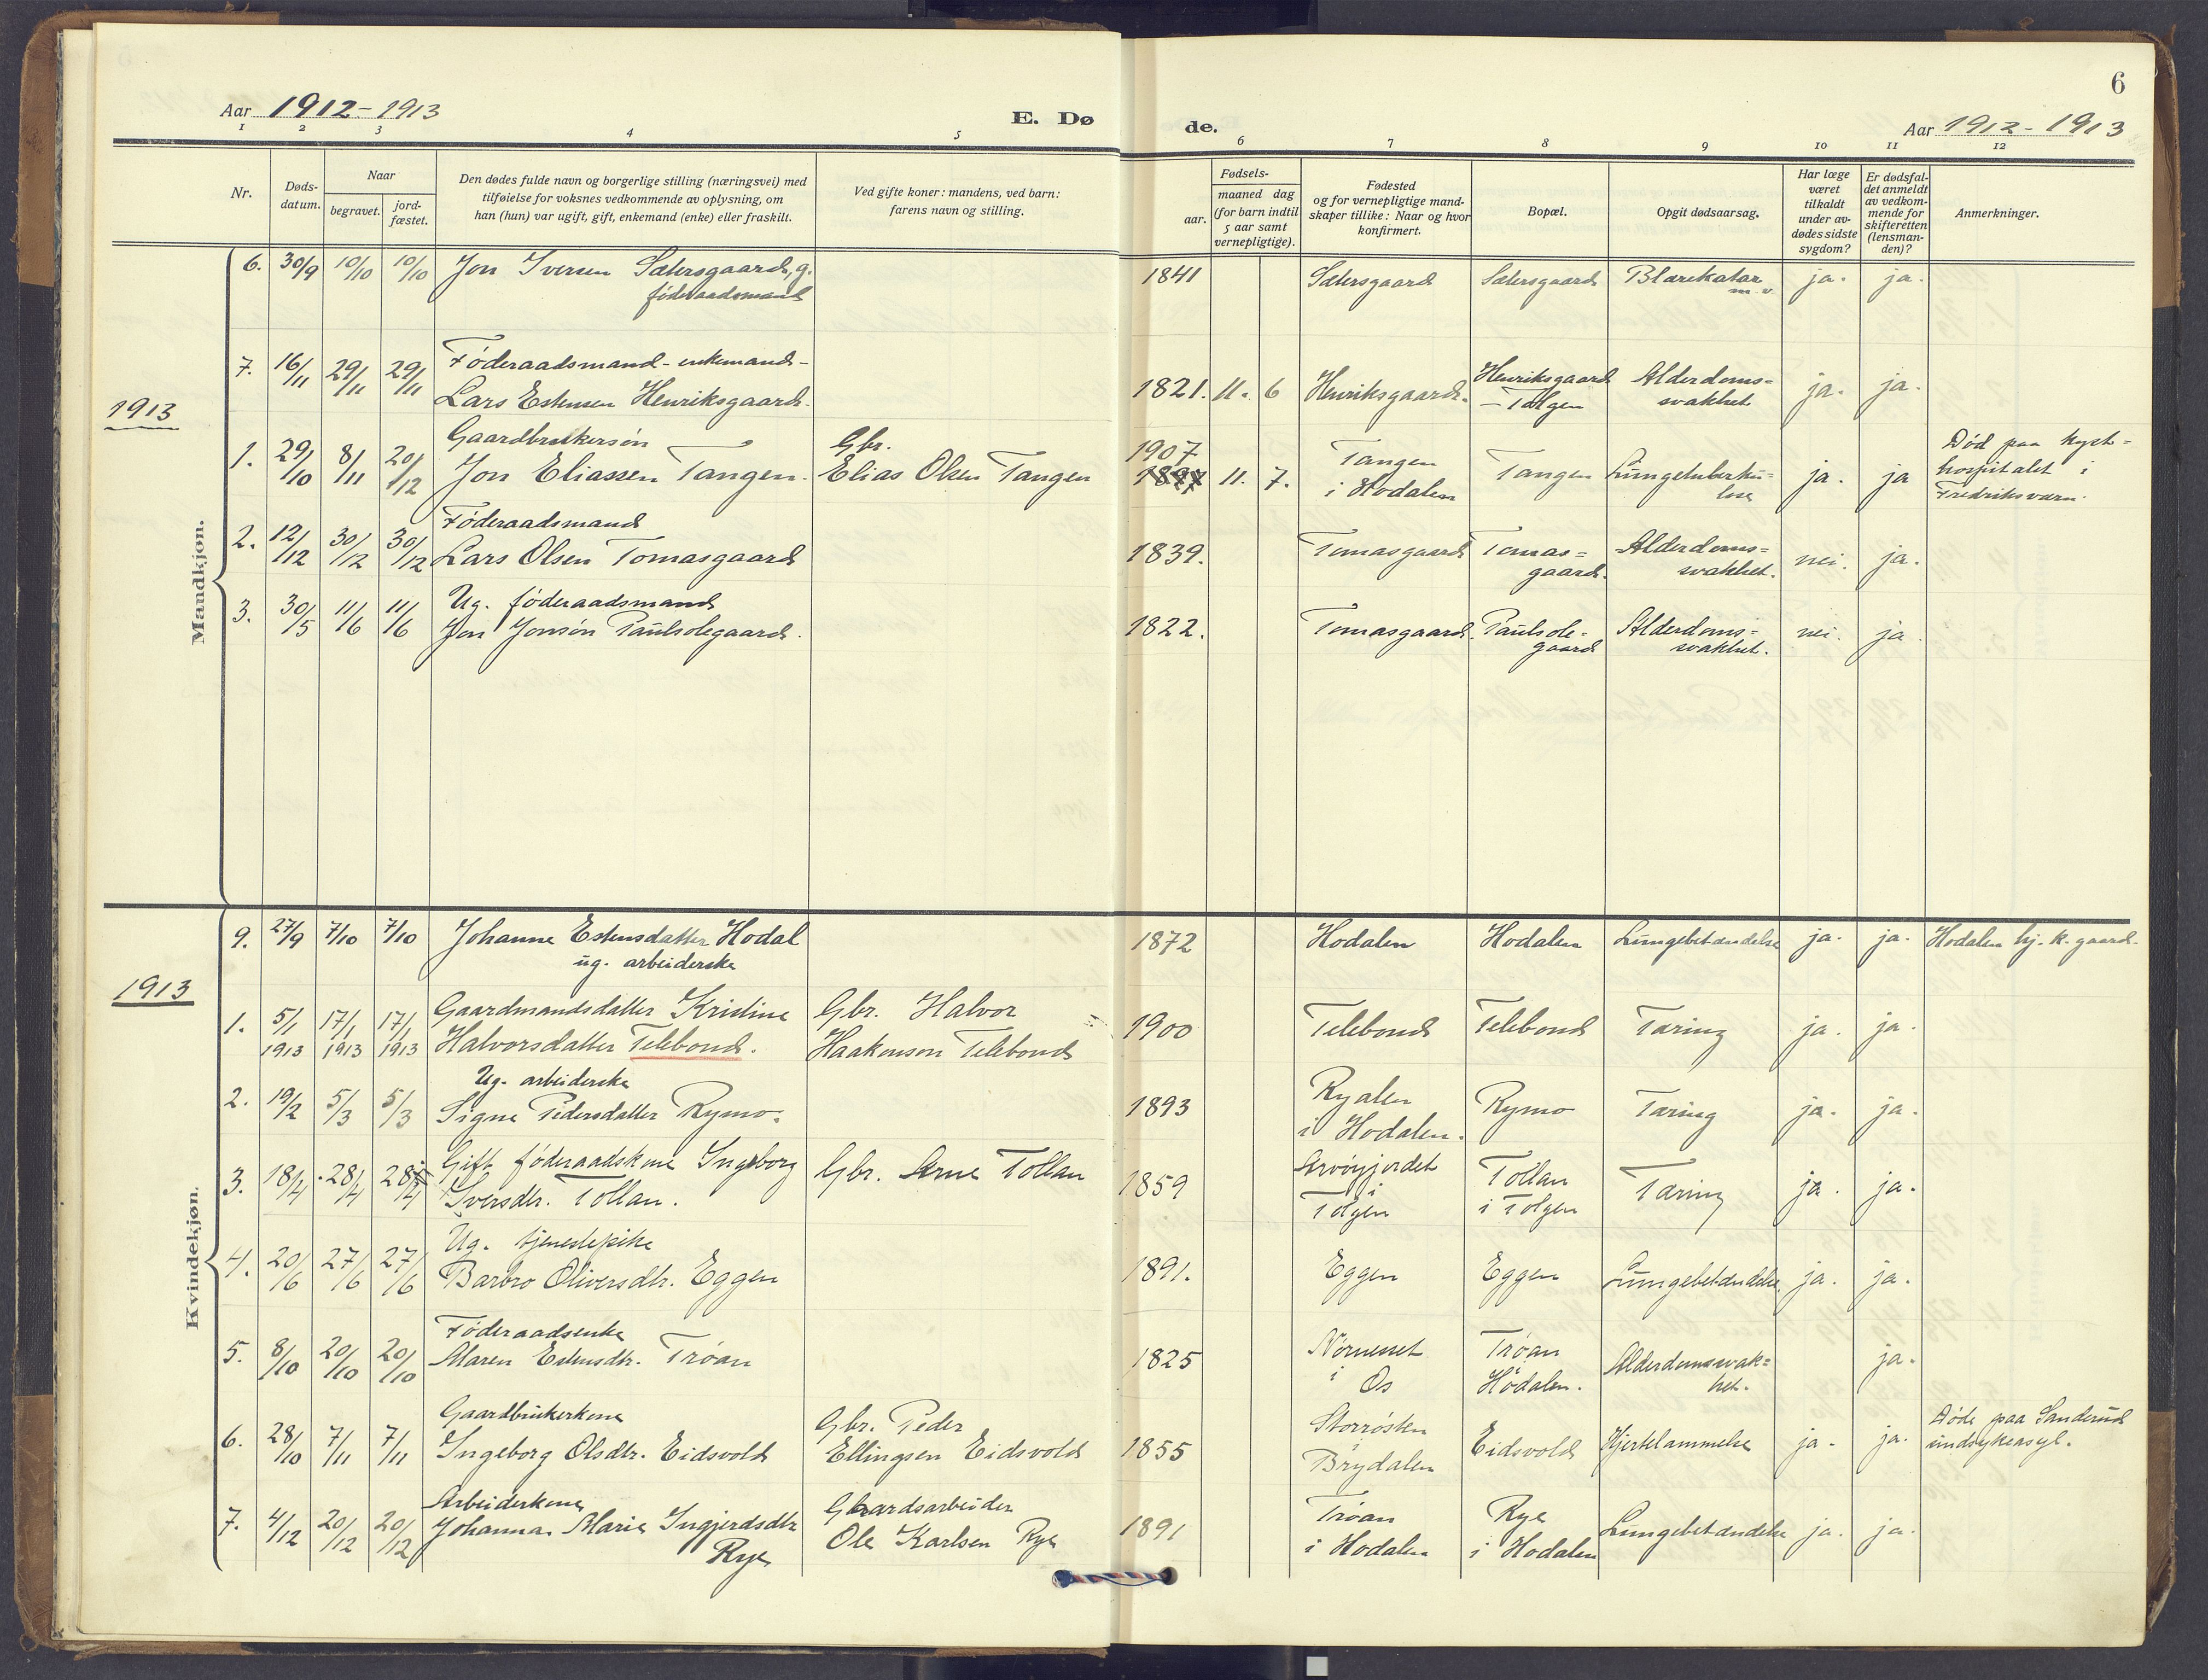 6
Aar 1912-1913
E. Dø de.
Aar 1912-1913
1 2 3 4 5 6 7 8 9 10 11 12
Nr.
Døds-
datum.
Naar
begravet.
jord-
fæstet.
Den dødes fulde navn og borgerlige stilling (næringsvei) med
tilføielse for voksnes vedkommende av oplysning, om
han (hun) var ugift, gift, enkemand (enke) eller fraskilt.
Ved gifte koner: mandens, ved barn:
farens navn og stilling.
Fødsels-
aar.
maaned dag
(for barn indtil
5 aar samt
vernepligtige).
Fødested
og for vernepligtige mand-
skaper tillike: Naar og hvor
konfirmert.
Bopæl.
Opgit dødsaarsag.
Har læge
været
tilkaldt
under av-
dødes sidste
sygdom?
Er dødsfal-
det anmeldt
av vedkom-
mende for
skifteretten
(lensman-
den)?
Anmerkninger.
Mandkjøn.
6. 30/9 10/10 10/10 Jon Iversen Sætersgaard, g. 1841 Sætersgaard Sætersgaard Blærekatar ja. ja.
føderaadsmand m. v.
7. 16/11 29/11 29/11 Føderaadsmand - enkemand - Henriksgaard Alderdoms=
Lars Estensen Henriksgaard. 1821. 11. 6 Henriksgaard. - Tolgen svakhet ja. ja.
1913
1. 29/10 8/11 20/12 Gaardbrukersøn Gbr. 1907 Tangen Død paa kyst=
Jon Eliassen Tangen. Elias Olsen Tangen 1897 11. 7. i Hodalen Tangen Lungetuberku= ja. ja hospitalet i
lose Fredriksværn.
2. 12/12 30/12 30/12 Føderaadsmand
Lars Olsen Tomasgaard 1839. Tomasgaard Tomas= Alderdoms= nei. ja.
gaard. svakhet.
3. 30/5 11/6 11/6 Ug. føderaadsmand
Jon Jonsøn Paulsolegaard. 1822. Tomasgaard. Paulsole= Alderdoms= nei. ja
gaard svakhet.
Kvindekjøn.
9. 27/9 7/10 7/10 Johanne Estensdatter Hodal 1872 Hodalen Hodalen Lungebetændelse ja. ja. Hodalen hj. k. gaard.
ug. arbeiderske
1913
1. 5/1 17/1 17/1 Gaardmandsdatter Kristine Gbr. Halvor 1900 Telebond Telebond Tæring ja. ja.
1913 1913 1913 Halvorsdatter Telebond. Haakonson Telebond
2. 19/2 5/3 5/3 Ug. arbeiderske Ryalen
Signe Pedersdatter Rymo. 1893 i Hodalen. Rymo Tæring ja. ja.
3. 18/4 28/4 28/4 Gift føderaadskone Ingeborg Gbr. Arne Tollan 1859 i Tollan Tæring ja. ja.
Iversdtr. Tollan. Tolgen i Tolgen
4. 20/6 27/6 27/6 Ug. tjenestepike
Barbro Oliversdtr. Eggen 1891. Eggen Eggen Lungebetændelse ja. ja.
5. 8/10 20/10 20/10 Føderaadsenke Trøan
Maren Estensdtr. Trøan 1825 i Os i Hodalen. Alderdomssvak= ja.
het.
6. 28/10 7/11 7/11 Gaardbrukerkone Gbr. Peder Storrøsten Døde paa Sanderud
Ingeborg Olsdtr. Eidsvold Ellingsen Eidsvold 1855 i Brydalen Eidsvold Hjertelammelse ja. ja. sindsykeasyl.
7. 4/12 20/12 20/12 Arbeiderkone Gaardsarbeider Trøan Rye
Johanna Marie Ingjerdsdtr Ole Karlsen Rye 1891 i Hodalen i Hodalen Lungebetændelse ja. ja.
Rye